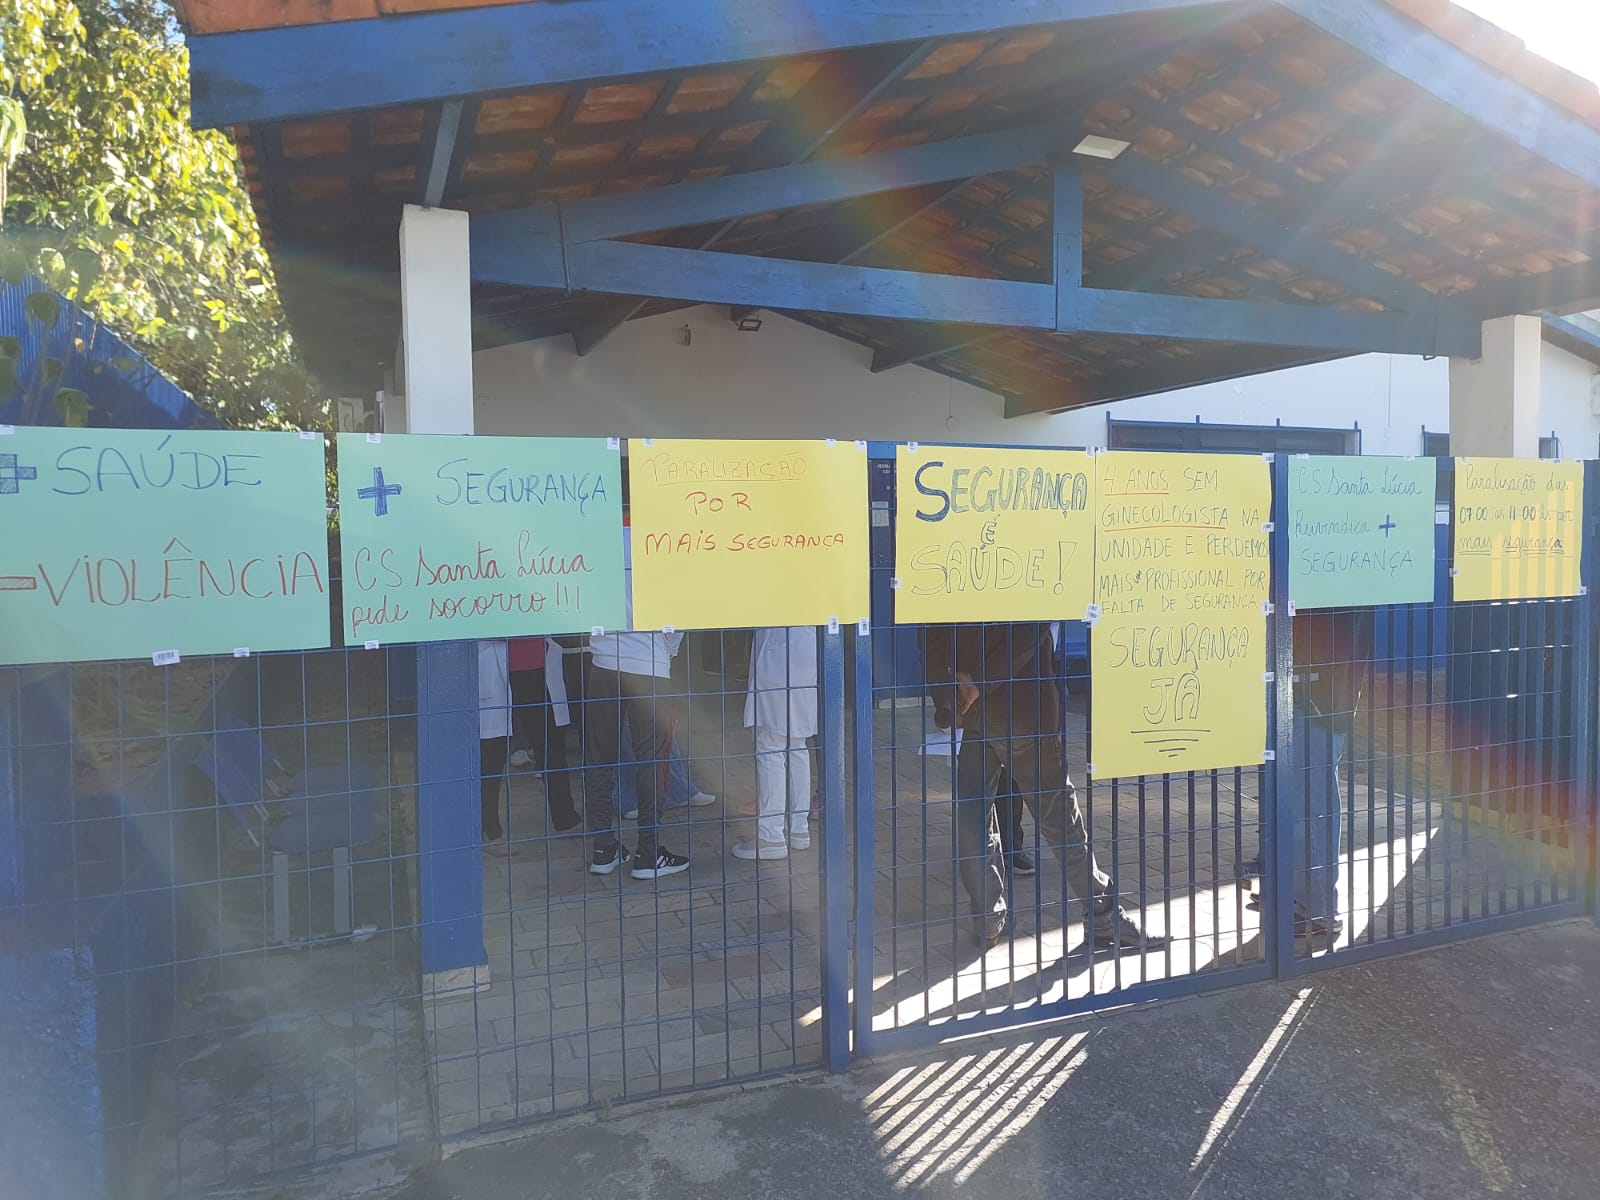 + SAÚDE
- VIOLÊNCIA
+ SEGURANÇA
CS Santa Lúcia
pede socorro!!!
PARALIZAÇÃO
POR
MAIS SEGURANÇA
SEGURANÇA
É
SAÚDE!
4 ANOS SEM
GINECOLOGISTA NA
UNIDADE E PERDEMOS
MAIS PROFISSIONAL POR
FALTA DE SEGURANÇA
SEGURANÇA
JÁ
CS Santa Lúcia
Reivindica +
SEGURANÇA
Paralisação das
07:00 às 11:00 hs por
mais segurança